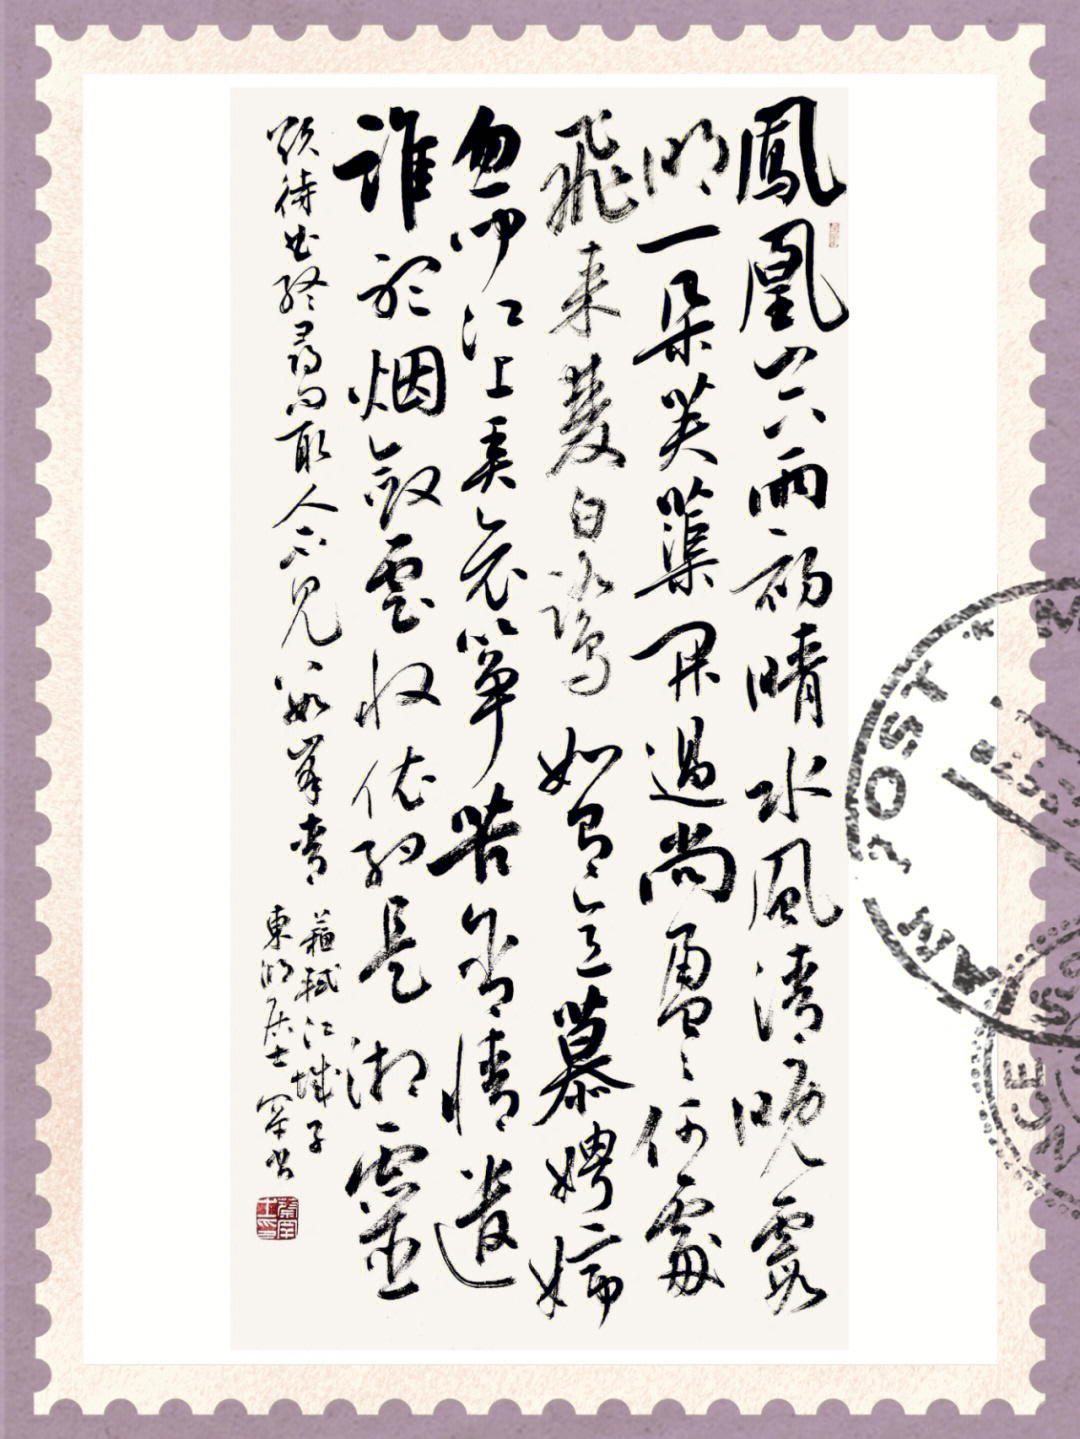 鳳凰山下雨初晴水風清晚霞
明一朵芙蕖開過尚盈盈何處
飛來雙白鷺如有意慕娉婷
忽聞江上弄哀箏苦含情遣
誰聽烟斂雲收依約是湘靈
欲待曲終尋問取人不見數峯青
蘇軾江城子
東明居士
POST